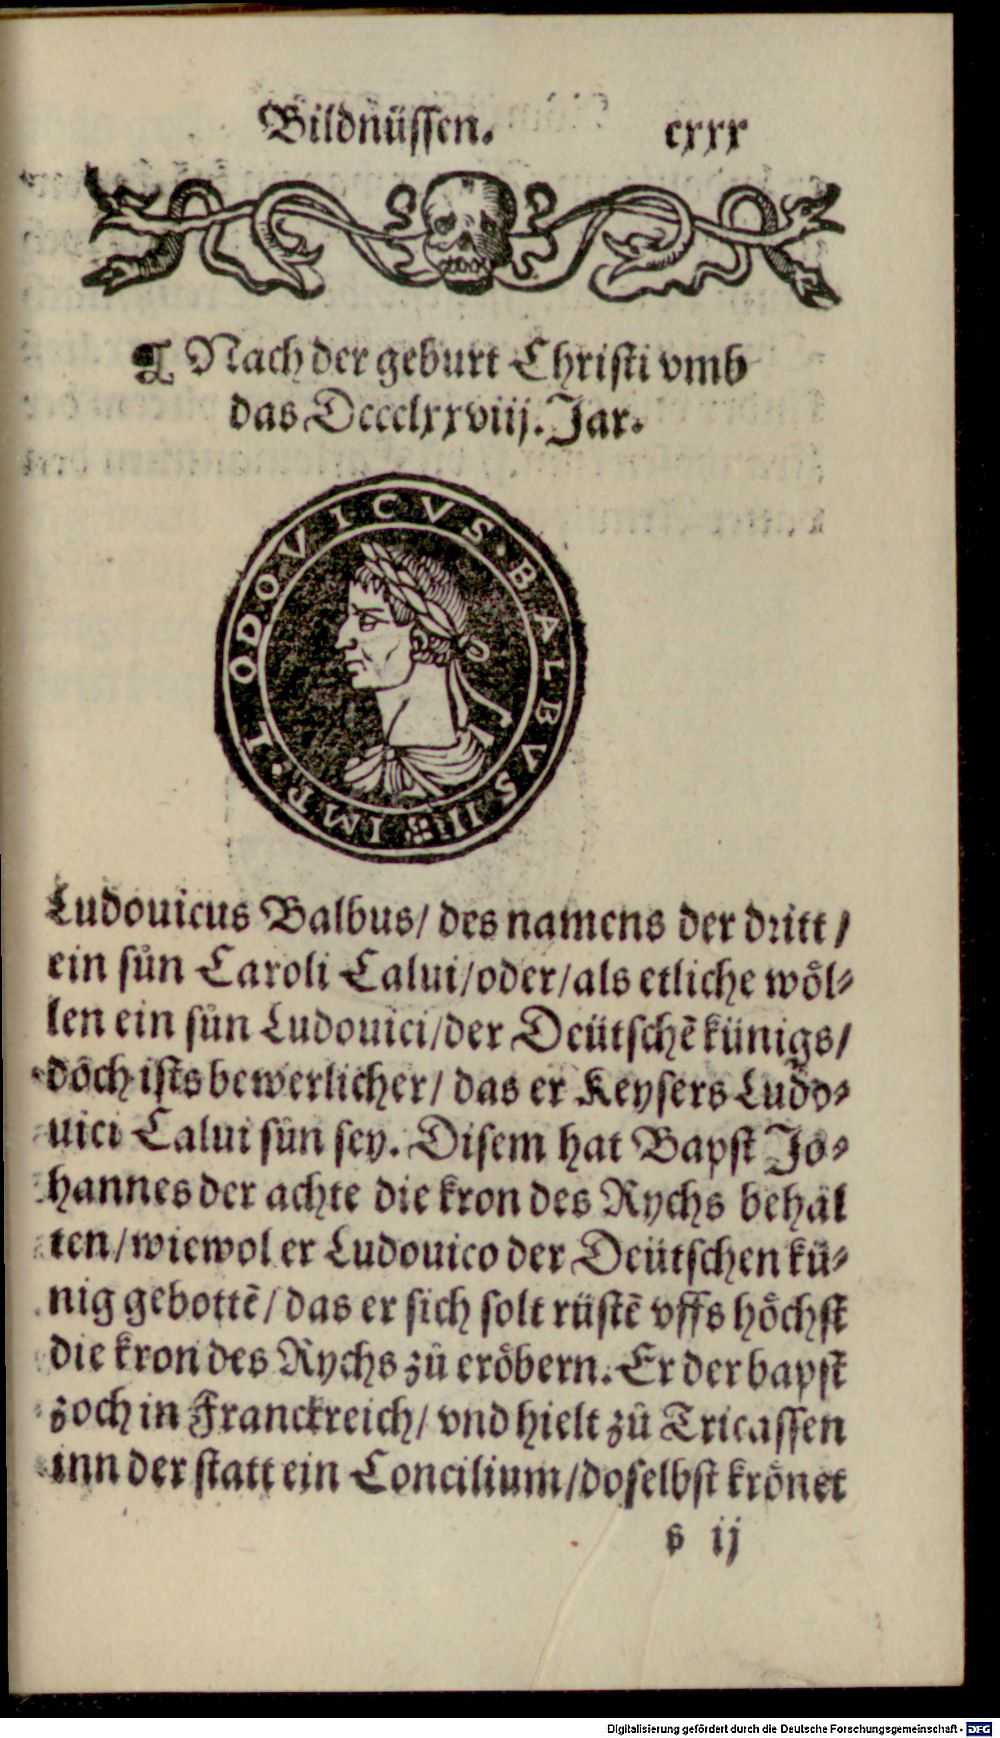 Bildnüssen. cxxx
¶ Nach der geburt Christi vmb
das Dccclxxviiij. Jar.
LODOVICVS · BALBVS II IMP ·
Ludouicus Balbus/ des namens der dritt/
ein sün Caroli Calui/oder/als etliche wöl⸗
len ein sün Ludouici/der Deütschē künigs/
döch ists bewerlicher/ das er Keysers Ludo⸗
uici Calui sün sey. Disem hat Bapst Jo⸗
hannes der achte die kron des Rychs behal
ten/wiewol er Ludouico der Deütschen kü⸗
nig gebottē/das er sich solt rüstē vffs höchst
die kron des Rychs zů eröbern. Er der bapst
zoch in Franckreich/ vnd hielt zů Tricassen
inn der statt ein Concilium/doselbst krönet
s ij
Digitalisierung gefördert durch die Deutsche Forschungsgemeinschaft - DFG